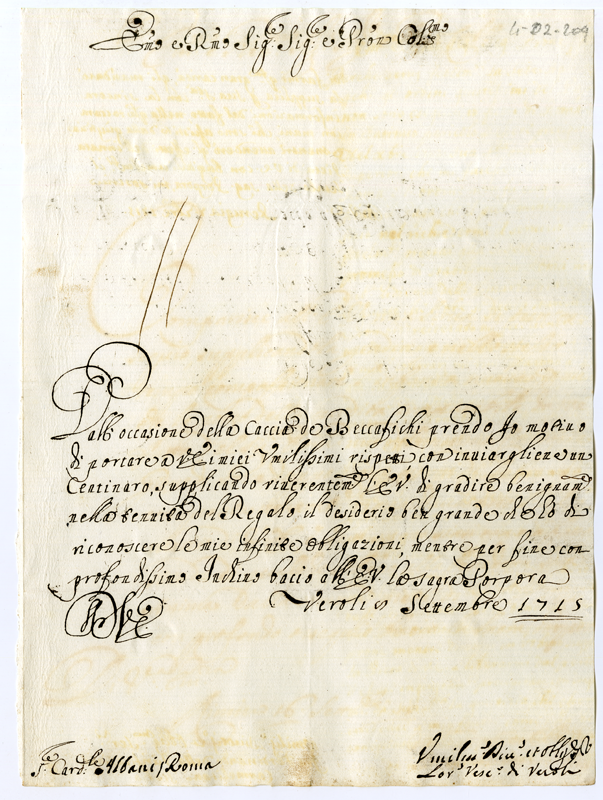 4-D2-209
Emo e Rmo Sig.re Sig.re e Pron Col.mo
Dall'occasione della Caccia de Beccafichi prendo Io motivo
di portare a V.E. i miei Umilissimi rispetti con inviargliene un
Centinaro, supplicando riverentem.te l'E.V. di gradire benignam.te
nella tenuità del Regalo il desiderio ben grande che hò di
riconoscere le mie infinite obligazioni, mentre per fine con
profondissimo Inchino bacio all'E.V. la sagra Porpora
Veroli Settembre 1715
S.r Card.le Albani Roma
Umiliss.o Div.o et obblig.o
Lor.o Vesc.o di Veroli